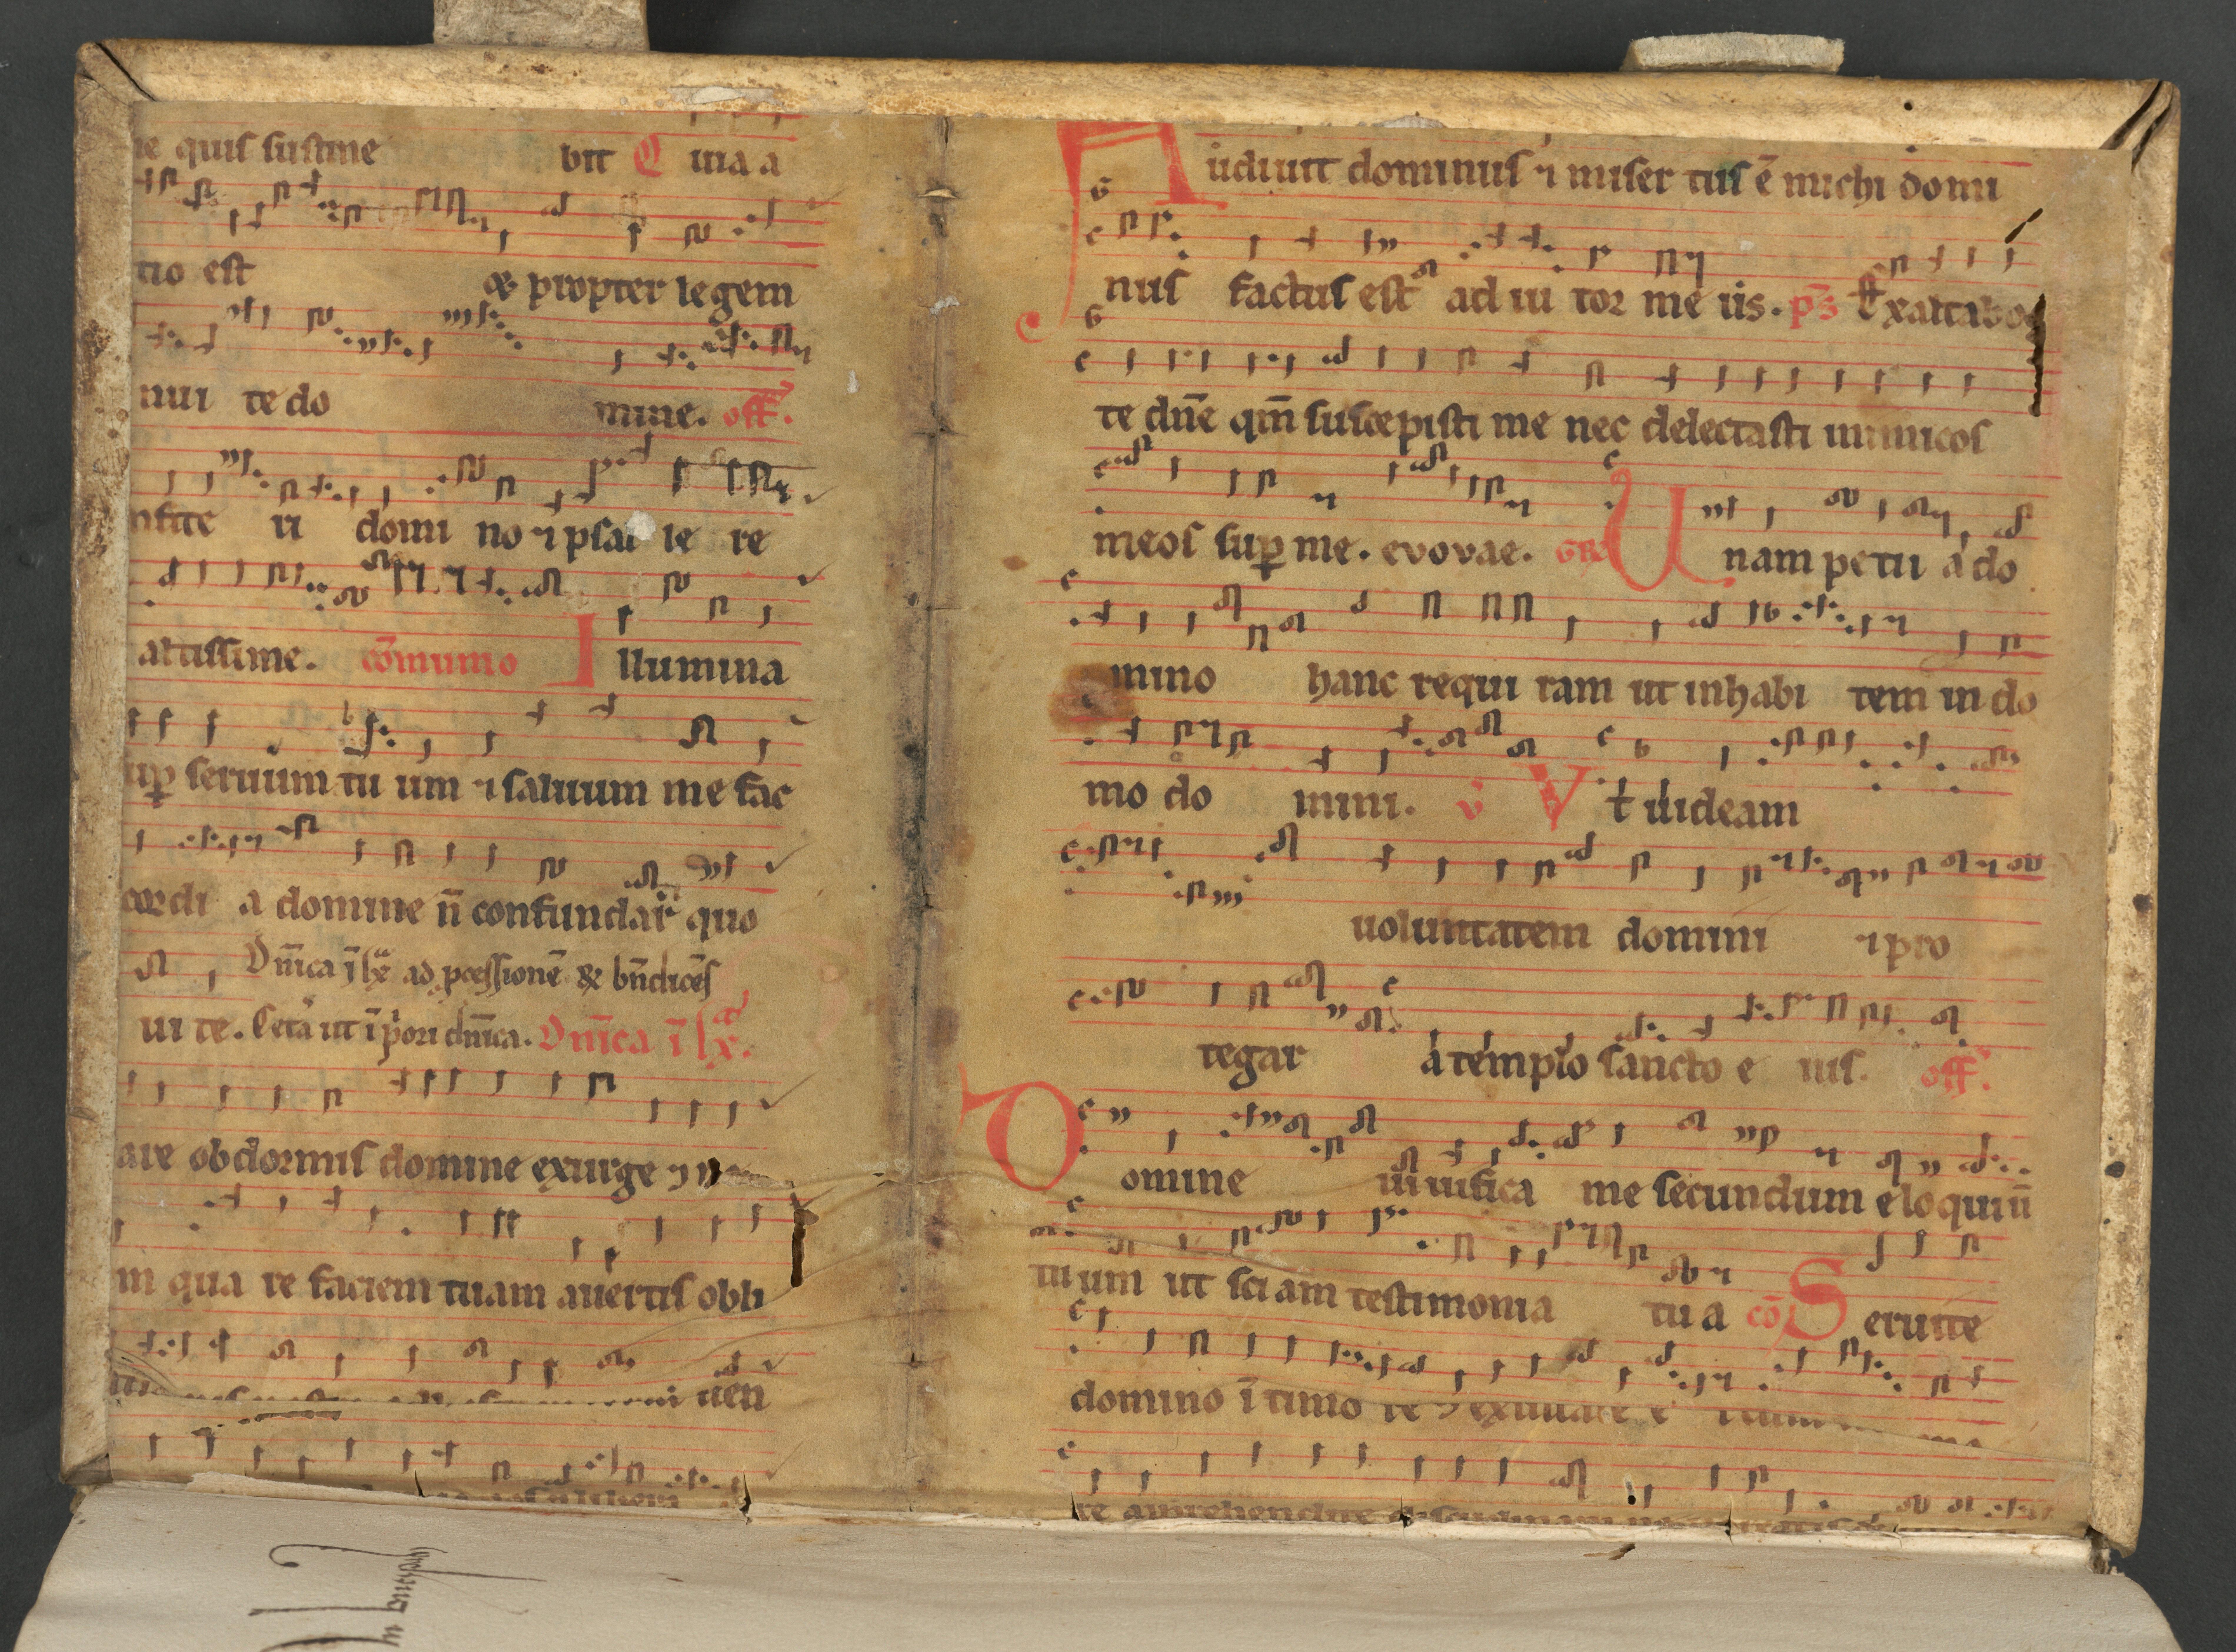 quis sustine bit Quia a
tio est & propter legem
nui te do mine. off.
ri domi no ⁊ psal le re
altissime. cōmunio Illumina
seruum tu um ⁊ saluum me fac
cordi a domine n̄ confundar quo
Dn̄ica ī lx ad pcessionē & bn̄dicēs
ui te. ut ī dn̄ica. Dn̄ica ī lx.
are obdormis domine exurge ⁊
in qua re faciem tuam auertis obli
uen
Audiuit dominus ⁊ miser tus ē michi domi
nus factus est ad iu tor me us. ps Exaltabo
te dn̄e qm̄ suscepisti me nec delectasti inimicos
meos sup me. evovae. GR Unam petii a do
mino hanc requi ram ut inhabi tem in do
mo do mini. v̄ Vt uideam
uoluntatem domini ⁊ pro
tegar a templo sancto e ius. off.
Domine uiuifica me secundum eloquiū
tuum ut sciam testimonia tu a cō Seruite
domino ī timo re ⁊ exultate e
re apprehendite disciplinam